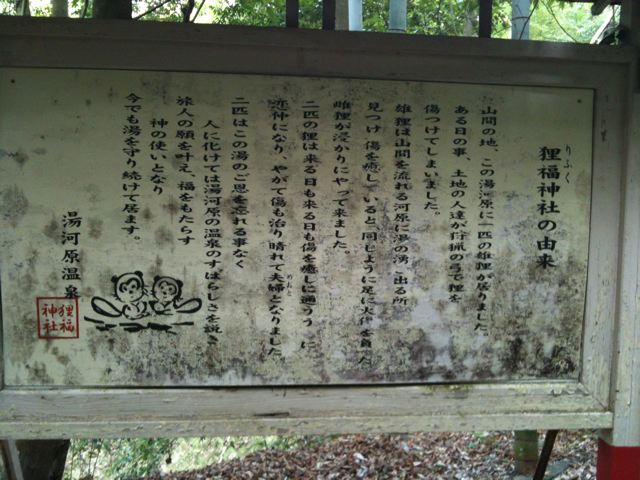 狸福神社の由来
りふく
山間の地、この湯河原に一匹の雄狸が居りました。
ある日の事、土地の人達が狩猟の弓で狸を
傷つけてしまいました。
雄狸は山間を流れる河原に湯の湧き出る所
見つけ 傷を癒していると 同じように足に火傷を負った
雌狸が浸かりにやって来ました。
二匹の狸は来る日も来る日も傷を癒しに通ううちに
恋仲になり、やがて傷も治り 晴れて夫婦となりました。
めおと
二匹はこの湯のご恩を忘れる事なく
人に化けては湯河原の温泉のすばらしさを説き
旅人の願を叶え、福をもたらす
神の使いとなり
今でも湯を守り続けて居ます。
湯河原温泉
狸福神社